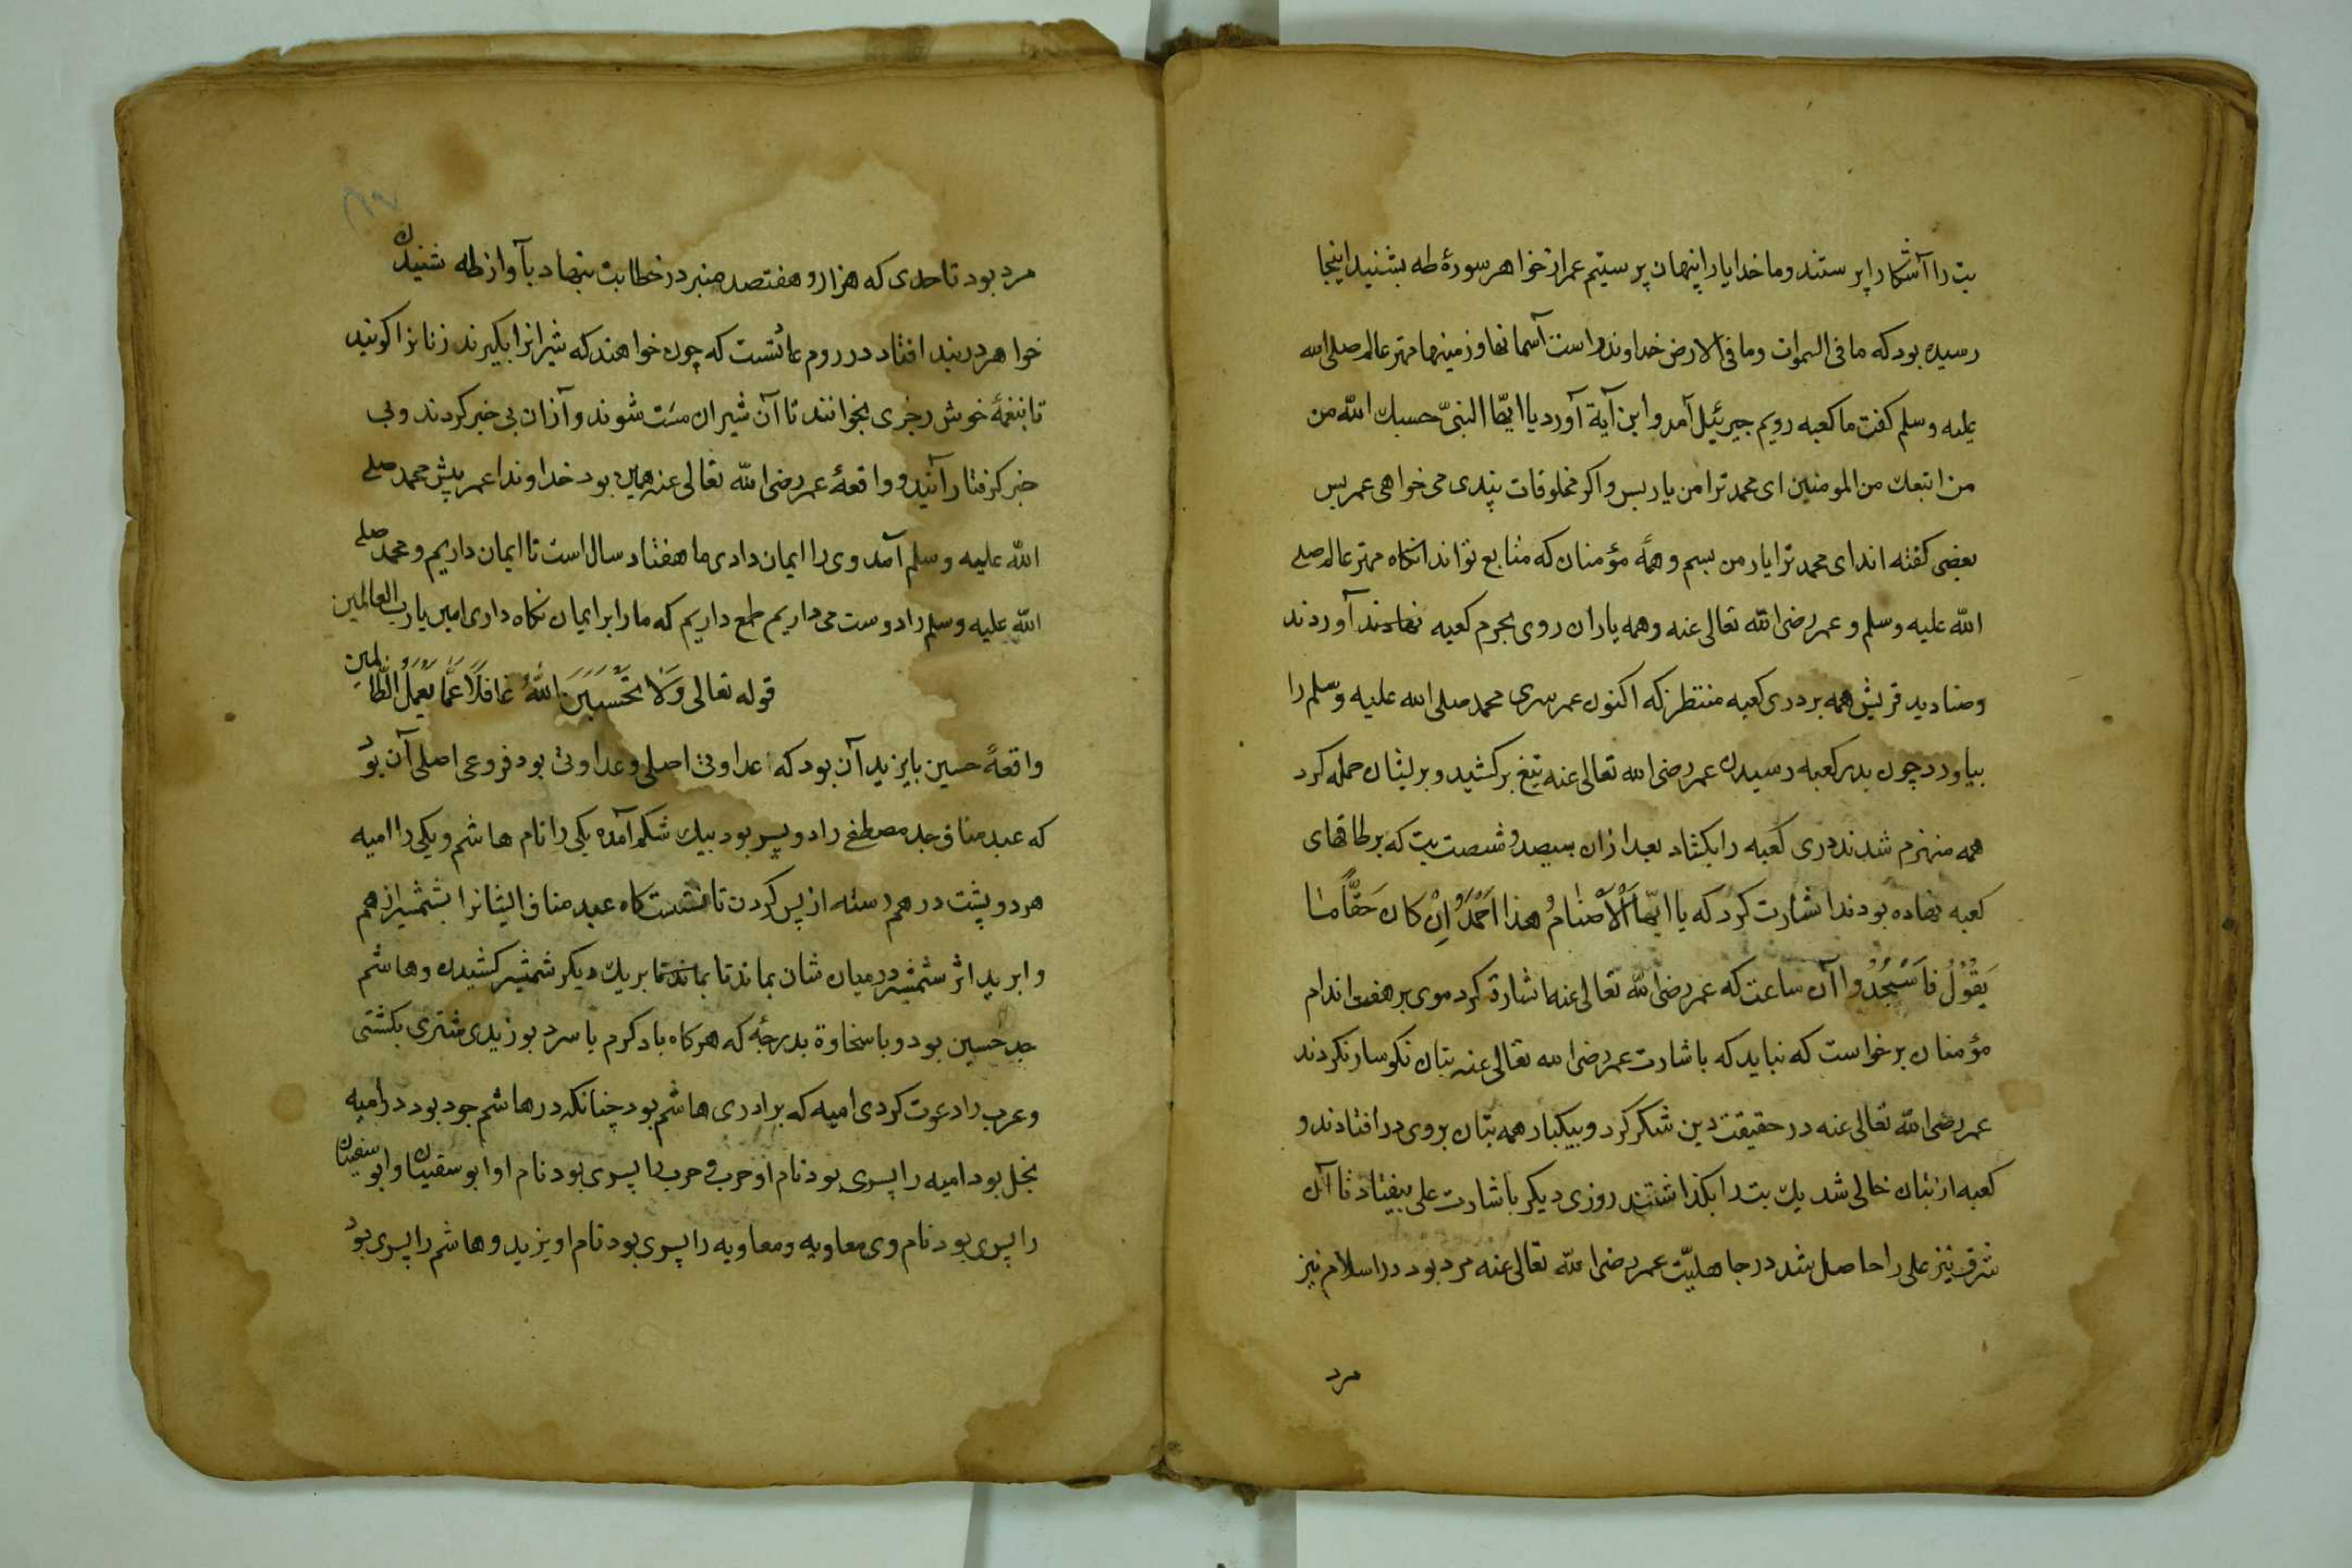 بت را آشکارا پرستند و ما خدایا را پنهان پرستیم عمر از خواهر سورهٔ طه بشنید اینجا
رسیده بود که ما فی السموات و ما فی الارض خداوند راست آسمانها و زمینها مهتر عالم صلی الله
علیه وسلم کفت ما کعبه رویم جبرئیل آمد و این آیة آورد یا ایها النبیّ حسبك الله من
من اتبعك من المومنین ای محمد ترا من یار بس و اکر مخلوقات پندی می خواهی عمر بس
بعضی کفته اند ای محمد ترا یار من بسم و همهٔ مؤمنان که متابع تواند انکاه مهتر عالم صلی
الله علیه وسلم و عمر رضی الله تعالی عنه و همه یاران روی بحرم کعبه نهادند آوردند
وصنادید قریش همه بر دری کعبه منتظر که اکنون عمر سری محمد صلی الله علیه وسلم را
بیاورد چون بدر کعبه رسیدن عمر رضی الله تعالی عنه تیغ برکشید و بر ایشان حمله کرد
همه منهزم شدند دری کعبه را بکشاد بعد از ان سیصد و شصت بت که بر طاقهای
کعبه نهاده بودند اشارت کرد که یا ایّها اَلْاَصْنامُ هذا اَحْمَدُ اِنْ کان حَقًّا ما
یَقُوْلُ فَاسْجُدُوا آن ساعت که عمر رضی الله تعالی عنه اشارة کرد موی بر هفت اندام
مؤمنان برخواست که نباید که باشارت عمر رضی الله تعالی عنه بتان نکوسار نکردند
عمر رضی الله تعالی عنه در حقیقت دین شکر کرد و بیکبار همه بتان بروی در افتادند و
کعبه از بتان خالی شد یك بت را بکذاشتند روزی دیکر باشارت علی بیفتاد تا آن
شرف نیز علی را حاصل شد در جاهلیّت عمر رضی الله تعالی عنه مرد بود در اسلام نیز
مرد
مرد بود تا حدی که هزار و هفتصد منبر در خطابت بنهاد بآواز طه شنیدن
خواهر در بند افتاد در روم عائست که چون خواهند که شیرانرا بکیرند زنانرا کویند
تا بنغمهٔ خوش رجزی بخوانند تا آن شیران مست شوند و آزان بی خبر کردند و بی
خبر کرفتار آیند و واقعهٔ عمر رضی الله تعالی عنه همین بود خداوندا عمر پیش محمد صلی
الله علیه وسلم آمد وی را ایمان دادی ما هفتاد سال است تا ایمان داریم و محمد صلی
الله علیه وسلم را دوست می داریم طمع داریم که ما را بر ایمان نکاه داری امین یا رب العالمین
قوله تعالی وَلَا تَحْسَبَنَّ اللّٰهَ غَافِلًا عَمَّا یَعْمَلُ الظَّالمین
واقعهٔ حسین با یزید آن بود که عداوتی اصلی و عداوتی بود فروعی اصلی آن بود
که عبد مناف جد مصطفی را دو پسر بود بیك شکم آمده یکی را نام هاشم و یکی را امیه
هر دو پشت در هم رسته از پس کردن تا نشستکاه عبد مناف ایشانرا بشمشیر از هم
وا برید اثر شمشیر در میان شان بماند تا بماند تا بر یك دیکر شمشیر کشیدن و هاشم
جد حسین بود و با سخاوة بدرجهٔ که هر کاه باد کرم یا سرد بوزیدی شتری بکشتی
و عرب را دعوت کردی امیه که برادری هاشم بود چنانکه در هاشم جود بود در امیه
بخل بود امیه را پسری بود نام او حرب و حرب را پسری بود نام او ابو سفیان و ابو سفیان
را پسری بود نام وی معاویه و معاویه را پسری بود نام او یزید و هاشم را پسری بود